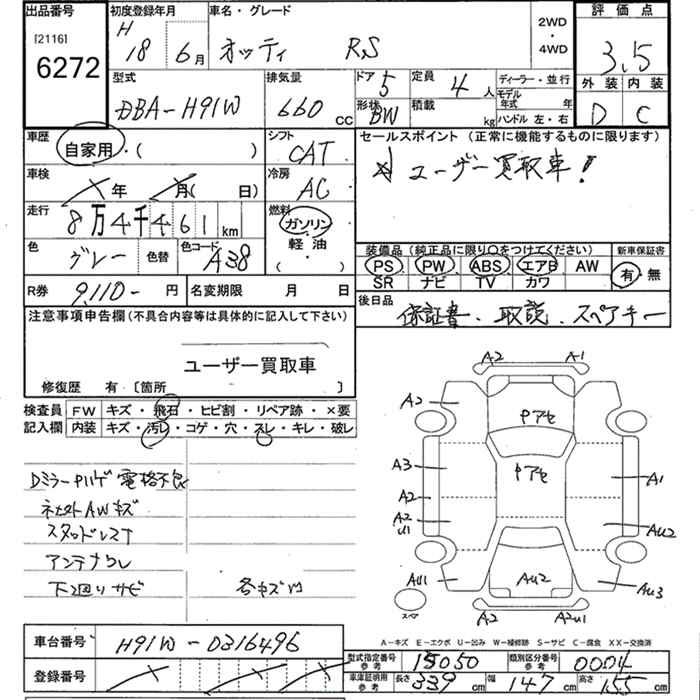 出品番号 初度登録年月 車名・グレード 2WD ・ 4WD 評価点
[2116] 6272 H 18年 6月 オッティ RS 3.5
型式 DBA-H91W 排気量 660 CC ドア 5 定員 4人 ディーラー・並行 外装 内装
形状 BW 積載 kg モデル年式 年 ハンドル 左・右 D C
車歴 自家用・( ) シフト CAT セールスポイント (正常に機能するものに限ります)
ユーザー買取車!
車検 年 月( 日) 冷房 AC
走行 8万4千461km 燃料 ガソリン 軽油 ( )
色 グレー 色替 色コード A38
装備品 (純正品に限り○をつけてください) 新車保証書
PS PW ABS エアB AW 有・無
SR ナビ TV カワ
R券 9,110- 円 名変期限 月 日 後日品 保証書、取説、スペアキー
注意事項申告欄(不具合内容等は具体的に記入して下さい)
ユーザー買取車
修復歴 有〔箇所 〕
検査員 FW キズ・飛石・ヒビ割・リペア跡・×要
記入欄 内装 キズ・汚レ・コゲ・穴・スレ・キレ・破レ
Dミラーハゲ 電格不良
ネセストAWキズ
スタッドレスTT
アンテナ
下廻りサビ 各キズ凹
A2 A1
A2 Pアセ
A3 Pアセ A1
A2
A2 U1 AU2
AU1 AU2 AU3
スペア A2 A2U1
A-キズ E-エクボ U-凹み W-補修跡 S-サビ C-腐食 XX-交換済
車台番号 H91W-0316496 型式指定番号 参考 15050 類別区分番号 参考 0004
登録番号 車庫証明用 参考 長さ 339cm 幅 147cm 高さ 155cm